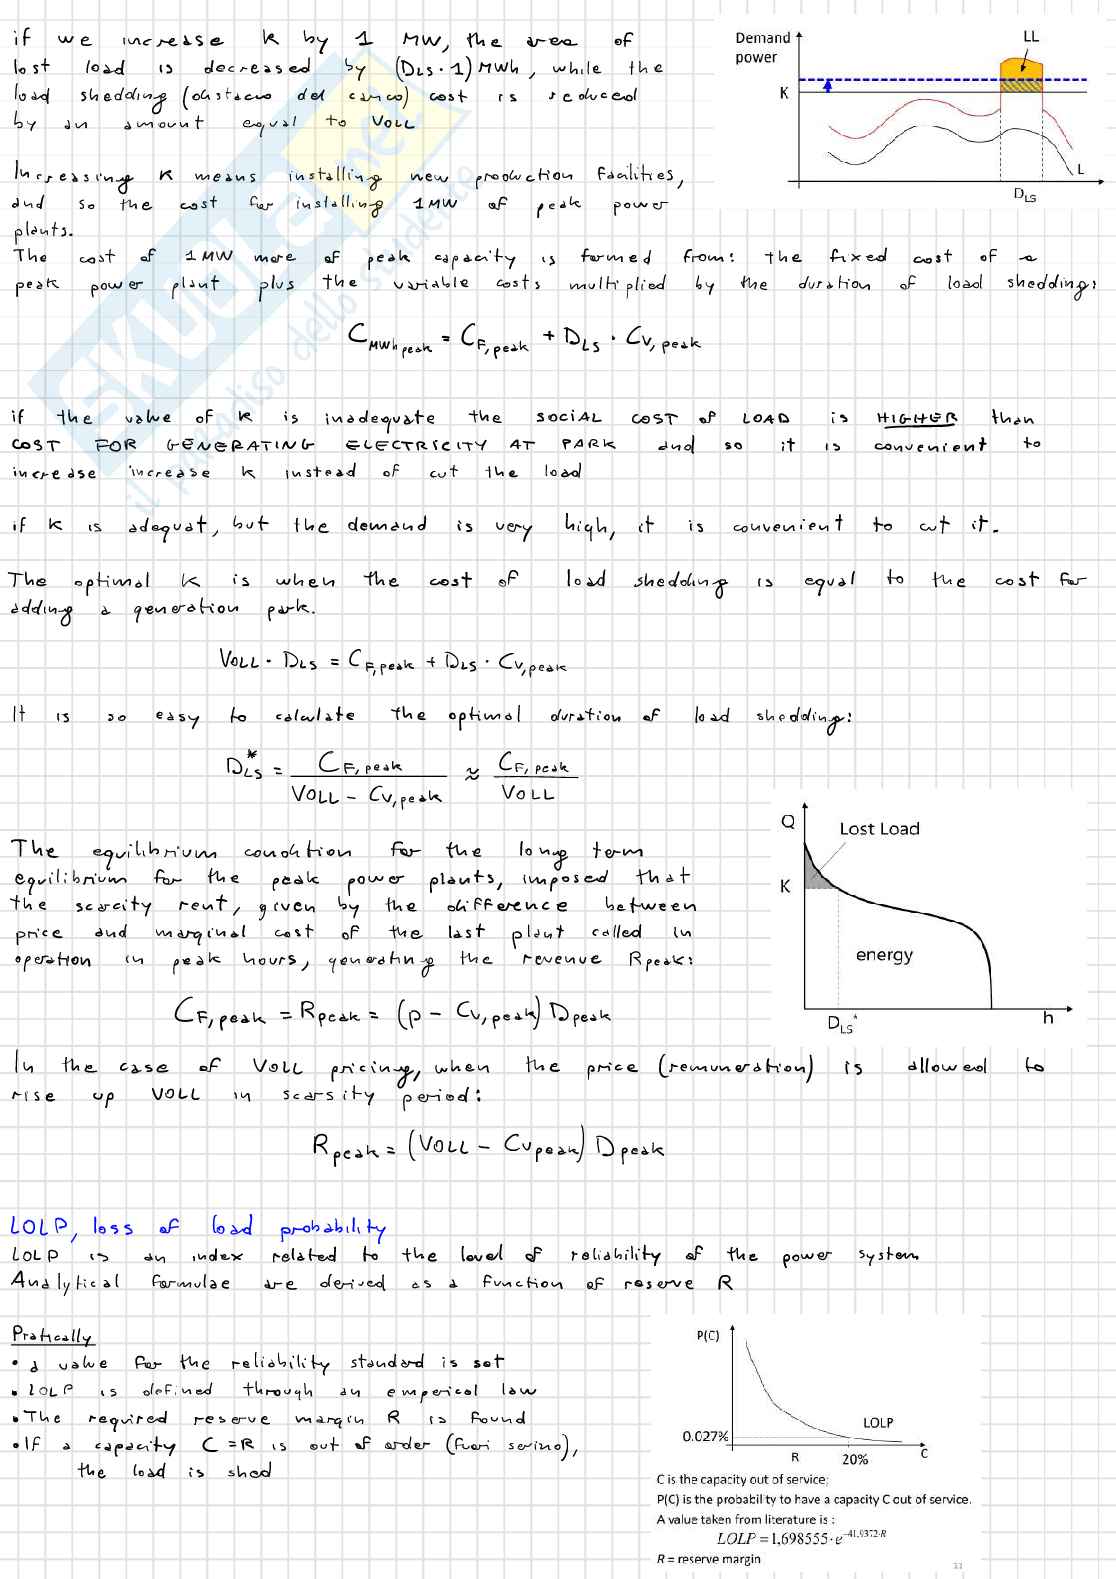 if we increase K by 1 MW, the area of
lost load is decreased by (DLS · 1) MWh, while the
load shedding (ostacolo del carico) cost is reduced
by an amount equal to VOLL
Demand
power
LL
K
L
DLS
Increasing K means installing new production facilities,
and so the cost for installing 1MW of peak power
plants.
The cost of 1MW more of peak capacity is formed from: the fixed cost of a
peak power plant plus the variable costs multiplied by the duration of load shedding:
CMWh peak = CF,peak + DLS · CV,peak
if the value of K is inadequate the SOCIAL COST of LOAD is HIGHER than
COST FOR GENERATING ELECTRICITY AT PARK and so it is convenient to
increase increase K instead of cut the load
if K is adequat, but the demand is very high, it is convenient to cut it.
The optimal K is when the cost of load shedding is equal to the cost for
adding a generation park.
VOLL · DLS = CF,peak + DLS · CV,peak
It is so easy to calculate the optimal duration of load shedding:
DLS* = CF,peak / (VOLL - CV,peak) ≈ CF,peak / VOLL
The equilibrium condition for the long term
equilibrium for the peak power plants, imposed that
the scarcity rent, given by the difference between
price and marginal cost of the last plant called in
operation in peak hours, generating the revenue Rpeak:
Q
Lost Load
K
energy
DLS*
h
CF,peak = Rpeak = (p - CV,peak) Dpeak
In the case of VOLL pricing, when the price (remuneration) is allowed to
rise up VOLL in scarsity period:
Rpeak = (VOLL - CVpeak) Dpeak
LOLP, loss of load probability
LOLP is an index related to the level of reliability of the power system
Analytical formulae are derived as a function of reserve R
Pratically
• a value for the reliability standard is set
• LOLP is defined through an emperical law
• The required reserve margin R is found
• If a capacity C = R is out of order (fuori serizio),
the load is shed
P(C)
LOLP
0.027%
R
20%
C
C is the capacity out of service;
P(C) is the probability to have a capacity C out of service.
A value taken from literature is :
LOLP = 1,698555 · e^-41,9372·R
R = reserve margin
33
SKUOLA.net
il paradiso dello studente